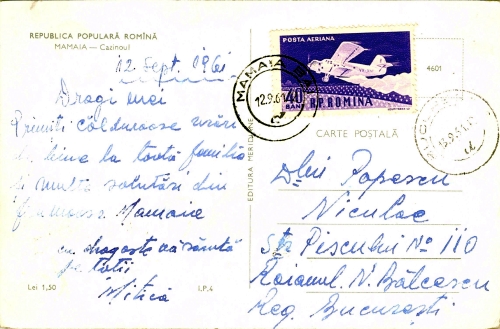 REPUBLICA POPULARĂ ROMÎNĂ
MAMAIA — Cazinoul
12 Sept. 1961
Dragi mei
Primiți călduroase urări
de bine la toată familia
și multe salutări din
frumoasa Mamaia
cu dragoste vă sărută
pe toti
Mitică
Lei 1,50
I.P.4
EDITURA MERIDIANE
POSTA AERIANA
40
BANI
R.P.ROMINA
MAMAIA
12.9.61
4601
CARTE POȘTALĂ
Dlui Popescu
Nicolae
Str Piscului No 110
Raionul N. Bălcescu
Reg. București